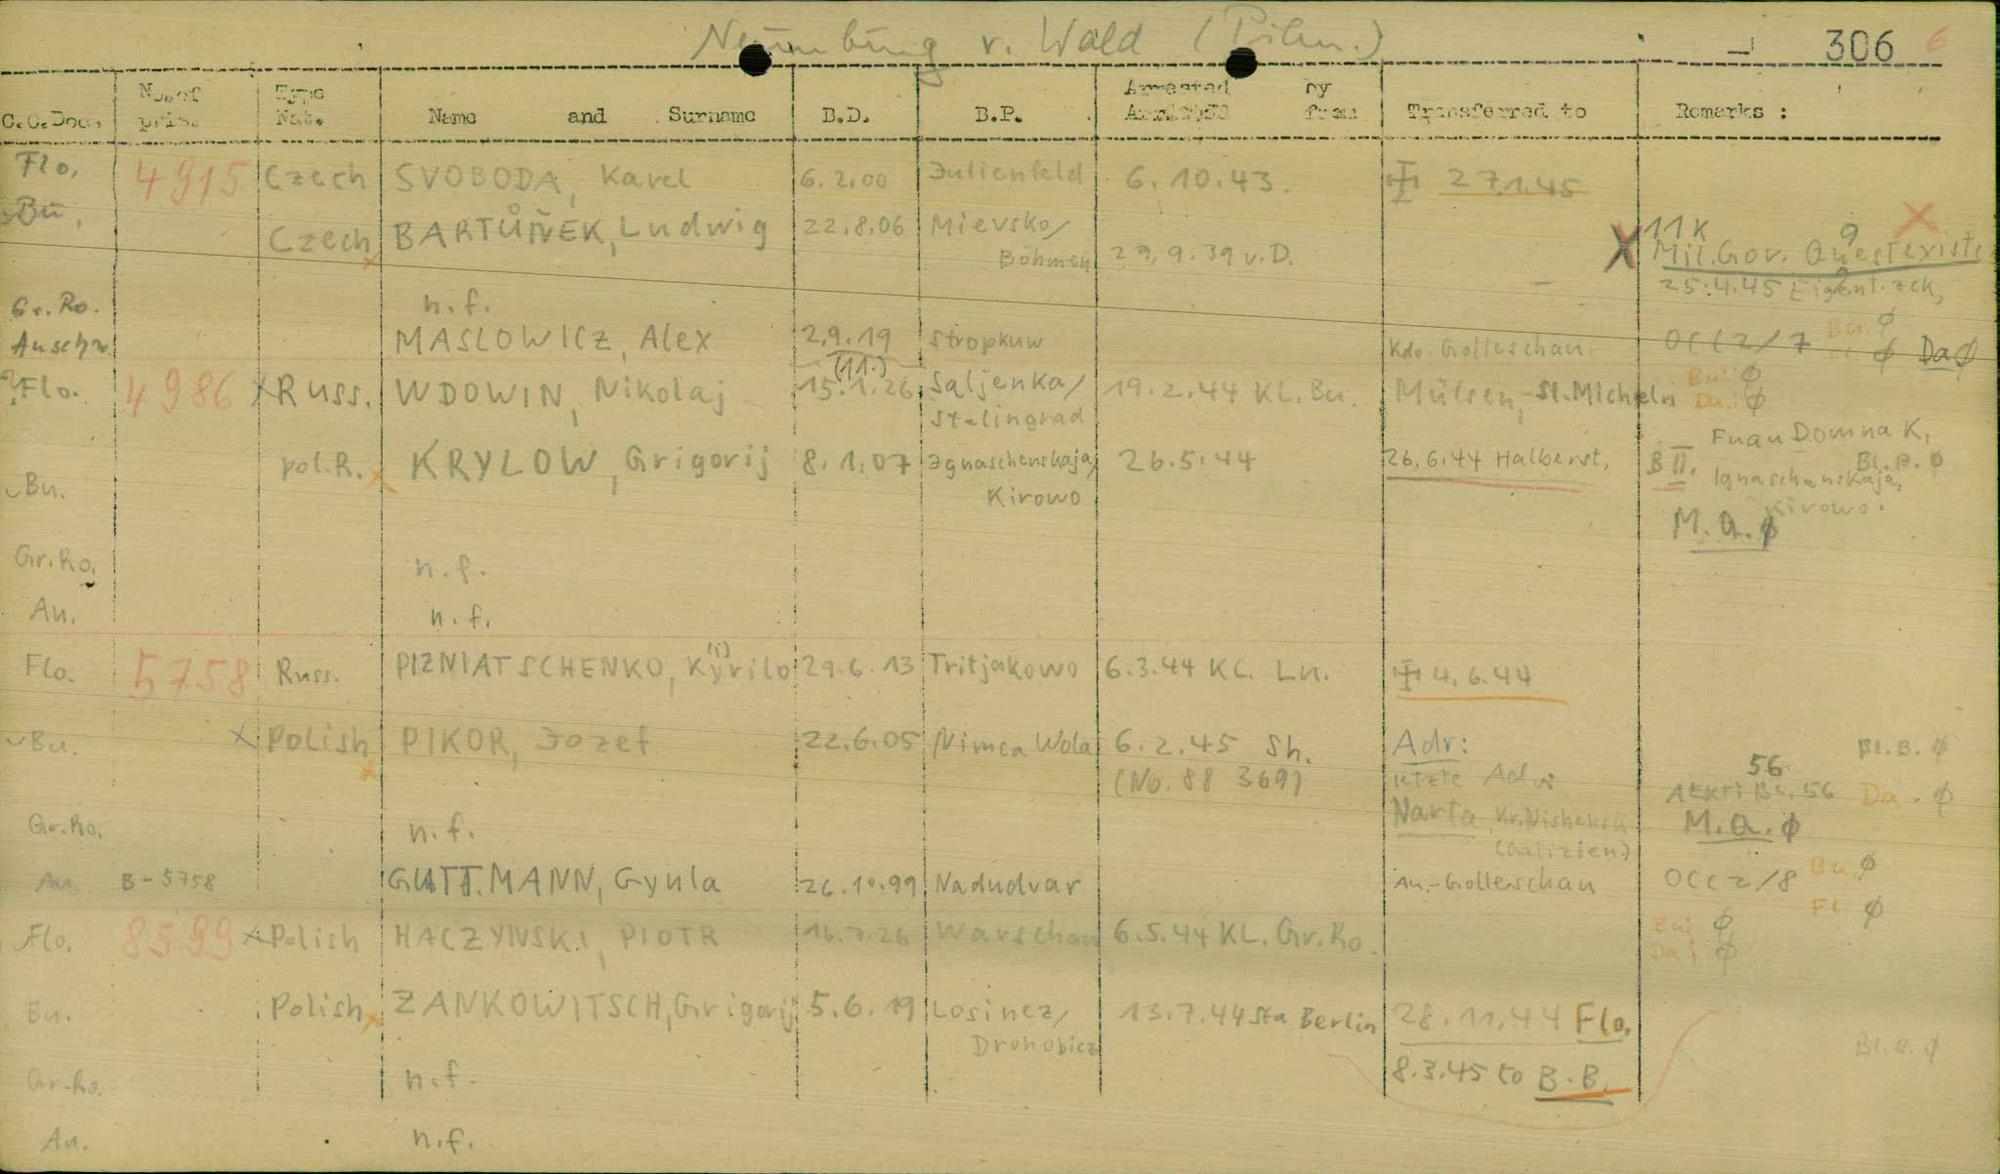 Neunburg v. Wald (Pilm.) 306 6
C.C.Doc. Nos of pris. Type Nat. Name and Surname B.D. B.P. Arrested by from Transferred to Remarks :
Flo. 4915 Czech SVOBODA, Karel 6.2.00 Julienfeld 6.10.43. 27.1.45
Bu. Czech BARTŮŇEK, Ludwig 22.8.06 Mievsko/ Böhmen 29.9.39 v.D. X 11K 9 X
Mil.Gov. Quest existe
25.4.45 Eigent. zck,
Gr.Ro. n.f.
Auschw. MASLOWICZ, Alex 2.9.19 Stropkuw Kdo. Golleschau OCC2/7 Bu. Ø
(11.) Fl. Ø Da Ø
?Flo. 4986 X Russ. WDOWIN, Nikolaj 15.1.26 Saljenka/ Stalingrad 19.2.44 KL. Bu. Mülsen,-St.Micheln Bu. Ø
Da. Ø
Bu. pol.R. KRYLOW, Grigorij 8.1.07 Jgnaschenskaja/ Kirowo 26.5.44 26.6.44 Halberst. B II. Frau Domna K,
Bl.B. Ø
Ignaschenskaja,
Kirowo.
M.A. Ø
Gr.Ro. n.f.
Au. n.f.
Flo. 5758 Russ. PIZNIATSCHENKO, Kyrilo (i) 29.6.13 Tritjakowo 6.3.44 KL. Lu. 4.6.44
Bu. X Polish PIKOR, Jozef 22.6.05 Nimca Wola 6.2.45 Sh. Adr: Bl.B. Ø
(No. 88 369) letzte Adr 56
Narta, Kr.Nishensk Bl. 56 Da. Ø
(Galizien) M.A. Ø
Gr.Ro. n.f.
Au. B-5758 GUTTMANN, Gyula 26.10.99 Nadudvar Au.-Golleschau OCC2/8 Bu Ø
Fl. Ø
Flo. 8599 X Polish HACZYNSKI, PIOTR 16.7.26 Warschau 6.5.44 KL. Gr.Ro. Bu: Ø
Da: Ø
Bu. Polish ZANKOWITSCH, Grigorij 5.6.19 Losinez/ Drohobicz 13.7.44 Sta Berlin 28.11.44 Flo.
Bl.B. Ø
Gr.Ro. n.f. 8.3.45 to B.B.
Au. n.f.